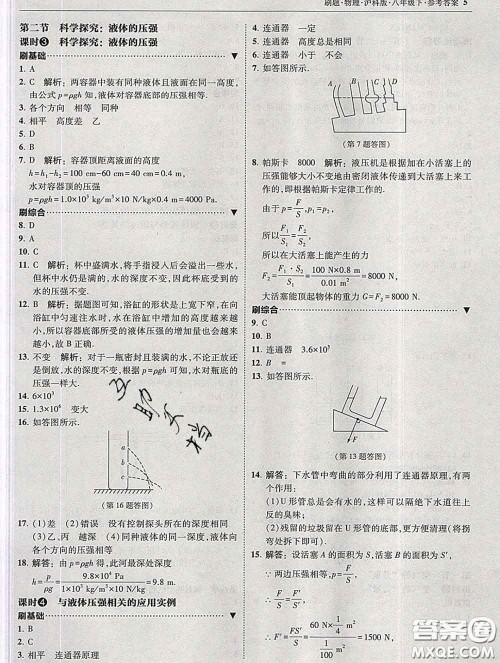 刷题·物理·沪科版·八年级下·参考答案 5
第二节 科学探究：液体的压强
课时❸ 科学探究：液体的压强
刷基础
1. A
2. C 解析：两容器中装有同种液体且液面在同一高度，
由公式 p=ρgh 知，液体对容器底部的压强相等。
3. 各个方向 相等 同种
4. 相平 高度差 乙
5. D
6. D
7. D 解析：容器顶距离液面的高度
h=h₁-h₂=100 cm-60 cm=40 cm=0.4 m，
水对容器顶的压强
p=ρgh=1.0×10³ kg/m³×10 N/kg×0.4 m=4000 Pa。
刷综合
8. D
9. A
10. D
11. C 解析：杯中盛满水，将手指浸入后会溢出一些水，
但杯中水仍是满的，水的深度不变，因此水对杯底的压
强不变。
12. B 解析：据题图可知，浴缸的形状是上宽下窄，在向
浴缸中注水时，水在浴缸中增加的高度越来越
小，所以容器底部所受的液体压强增大得越来越
慢。故 B 正确。
13. 不变 解析：对于一瓶密封且装满的水，不论正放还
是倒放，水的深度不变，因此水对瓶盖和瓶底的压
强一样大。
14. 6×10³
15. 1.3×10⁶ 变大
16. 如答图所示。
(第 16 题答图)
17. (1)差 (2)错误 没有控制探头所在的深度相同
(3)乙、丙 越深 (4)同种液体在同一深度处，液体
向各个方向的压强相等
18. 解答：由 p=ρgh 得，此河最深处深度
h=p/ρg=9.8×10⁴ Pa/1×10³ kg/m³×10 N/kg=9.8 m。
课时❹ 与液体压强相关的应用实例
刷基础
1. B
2. C
3. 相平 连通器原理
4. 连通器
5. 连通器 高度总是相同
6. 连通器 小于 不会
7. 如答图所示。
(第 7 题答图)
8. 帕斯卡 8000 解析：液压机是根据加在小活塞上的
压强能够大小不变地由密闭液体传递到大活塞上来工
作的，即根据帕斯卡定律工作的。
由 p=F/S，p₁=p₂，
所以 F₁/S₁=F₂/S₂
所以在大活塞上能产生的力
F₂=F₁·S₂/S₁=100 N×0.8 m/0.01 m²=8000 N，
大活塞能顶起物体的重力 G=F₂=8000 N。
刷综合
9. C
10. C
11. 连通器 3.6×10³
12. B =
13. 如答图所示。
F
(第 13 题答图)
14. 解答：下水管中弯曲的部分利用了连通器原理。
(1)U 形管总是会有水的，这样可以隔绝下水道往上
的臭味；
(2)残留的好垃圾往往在 U 形管的底部，方便清理(将拐
弯处拆下即可)。
15. 解答：设活塞 A 的面积为 S，活塞 B 的面积为 S′，
∵ 两边压强相等，
∴ F/S=F′/S′
互助文档